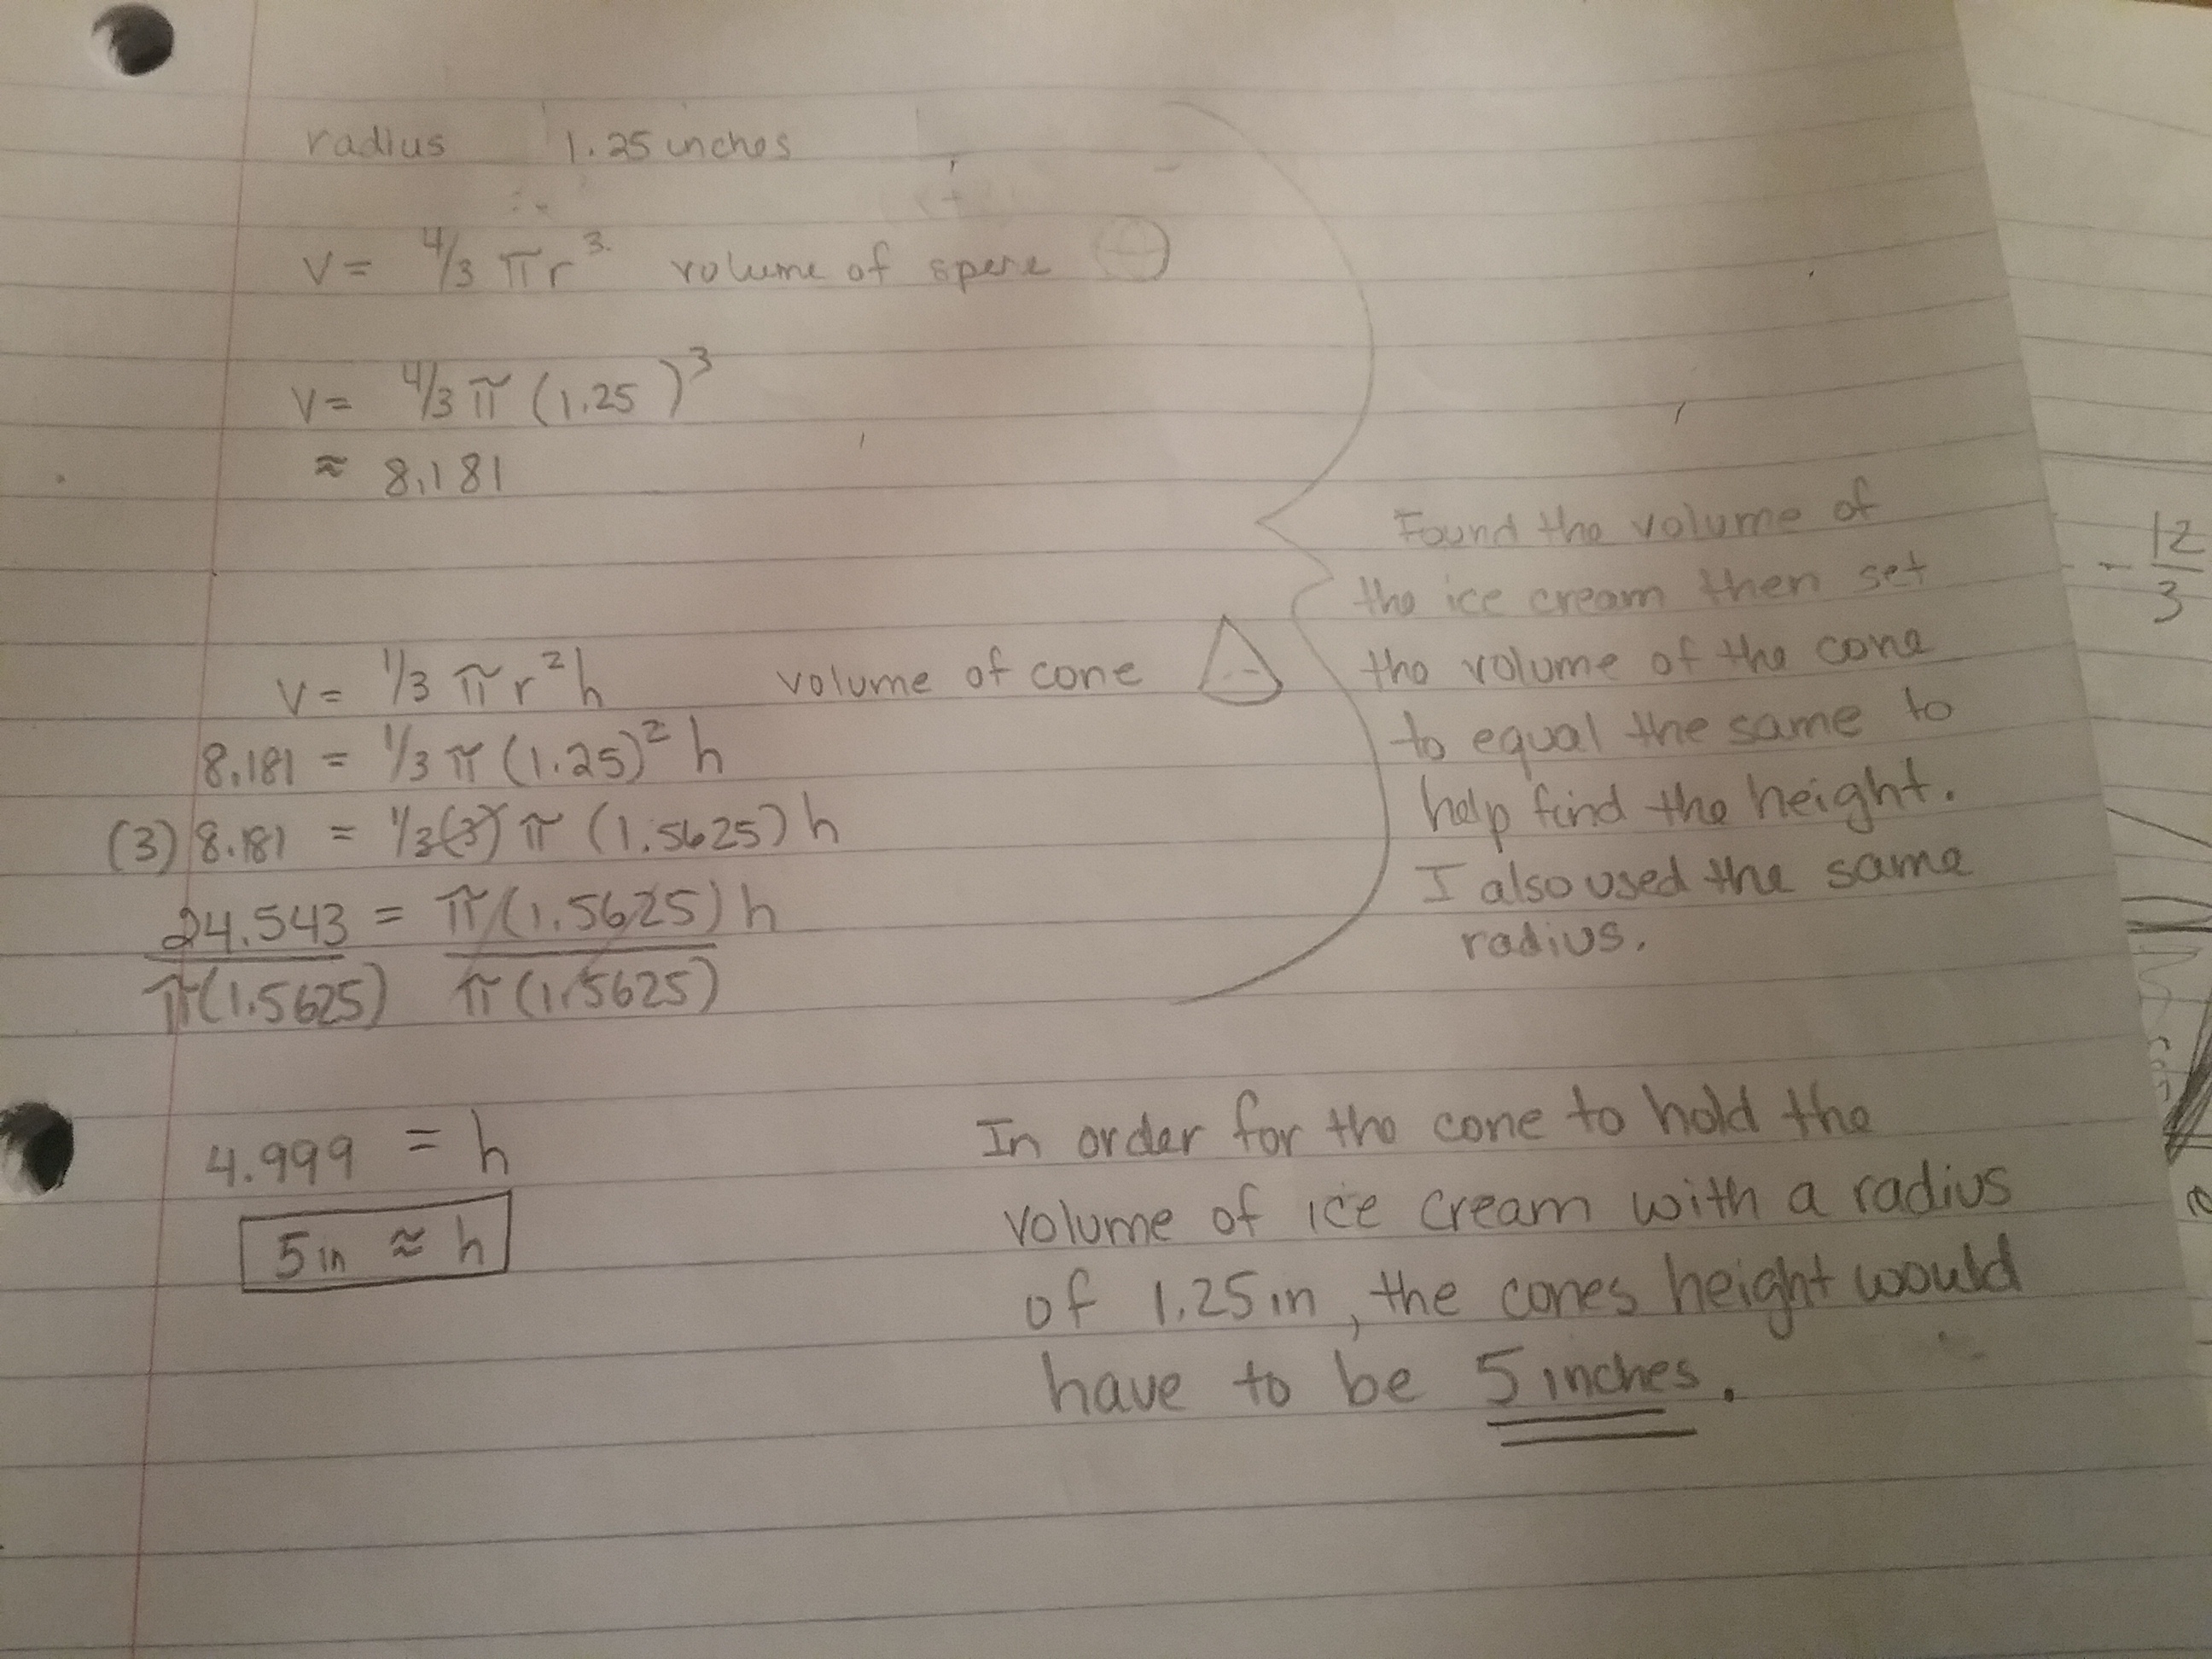 radius 1.25 inches
V = 4/3 πr³ volume of spere
V = 4/3 π (1.25)³
≈ 8.181
V = 1/3 πr²h volume of cone
8.181 = 1/3 π (1.25)² h
(3) 8.181 = 1/3 (3) π (1.5625) h
24.543 = π (1.5625) h
π(1.5625) π (1.5625)
4.999 = h
5 in ≈ h
Found the volume of
the ice cream then set
the volume of the cone
to equal the same to
help find the height.
I also used the same
radius.
In order for the cone to hold the
volume of ice cream with a radius
of 1.25 in, the cones height would
have to be 5 inches.
- 12
3